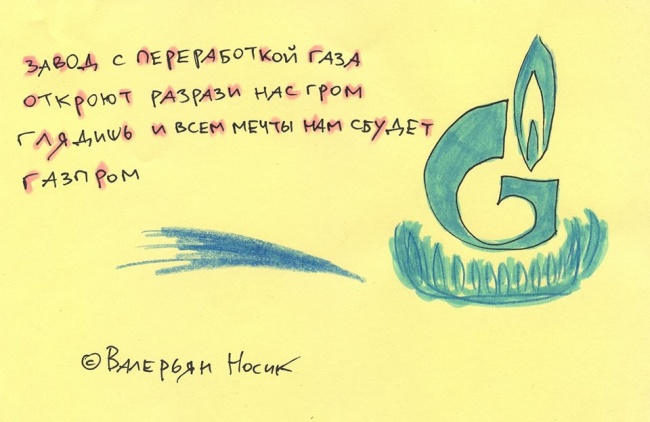 ЗАВОД С ПЕРЕРАБОТКОЙ ГАЗА
ОТКРОЮТ РАЗРАЗИ НАС ГРОМ
ГЛЯДИШЬ И ВСЕМ МЕЧТЫ НАМ СБУДЕТ
ГАЗПРОМ
© ВАЛЕРЬЯН НОСИК